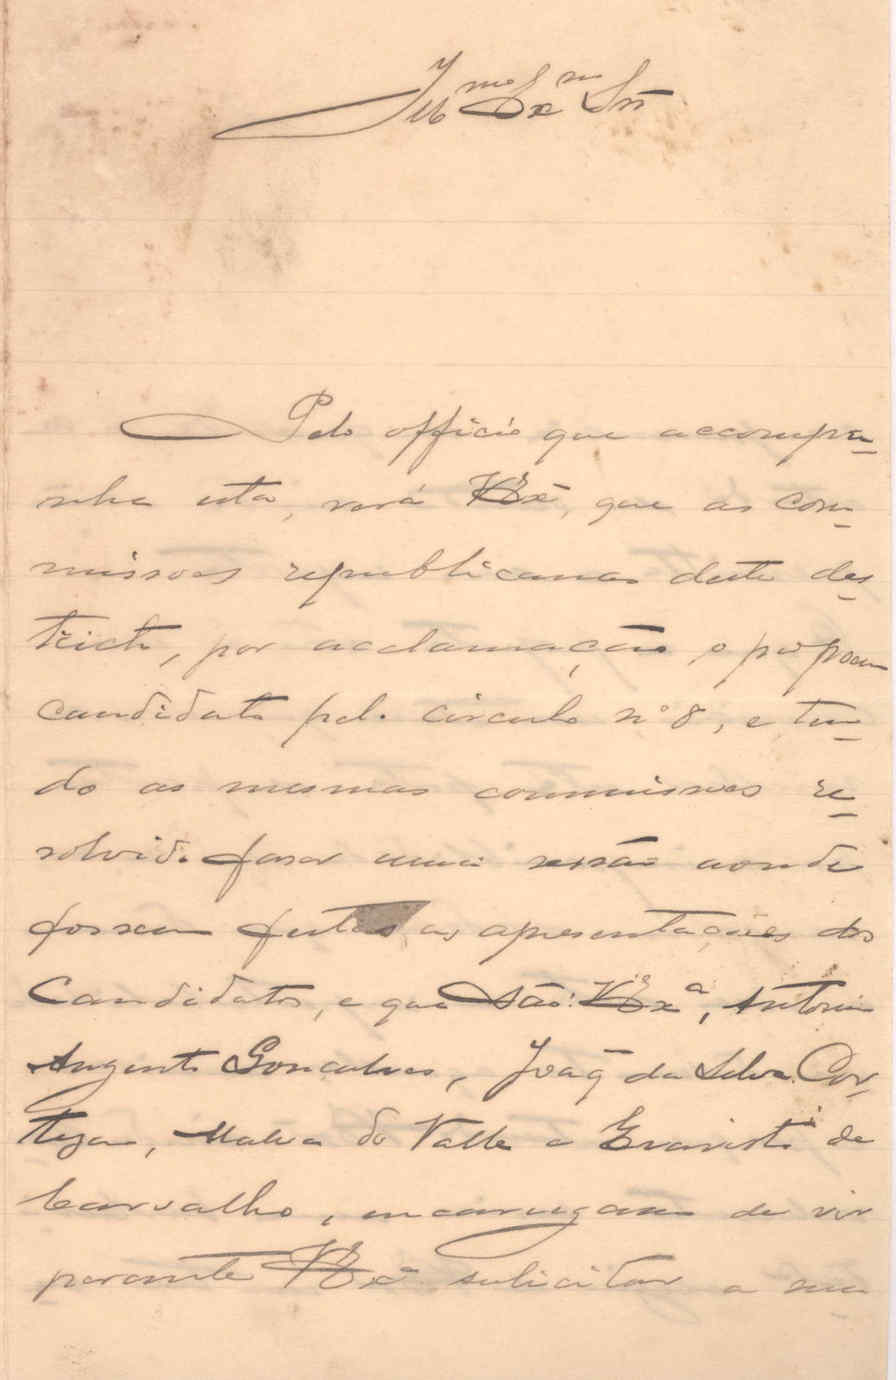 Illmo Exmo Snr
Pelo officio que accompa-
nha esta, verá V. Exª, que as com-
missoes republicanas deste des-
tricto, por acclamação o propoem
candidato pelo circulo nº 8, e ten-
do as mesmas commissoes re-
solvido faser uma sessão aonde
fossem feitas as apresentações dos
Candidatos, e que são: V. Exª, Antonio
Augusto Gonçalves, João da Silva Cor-
tezão, Malva do Valle e Evaristo de
Carvalho, encarregam de vir
perante V. Exª solicitar a sua